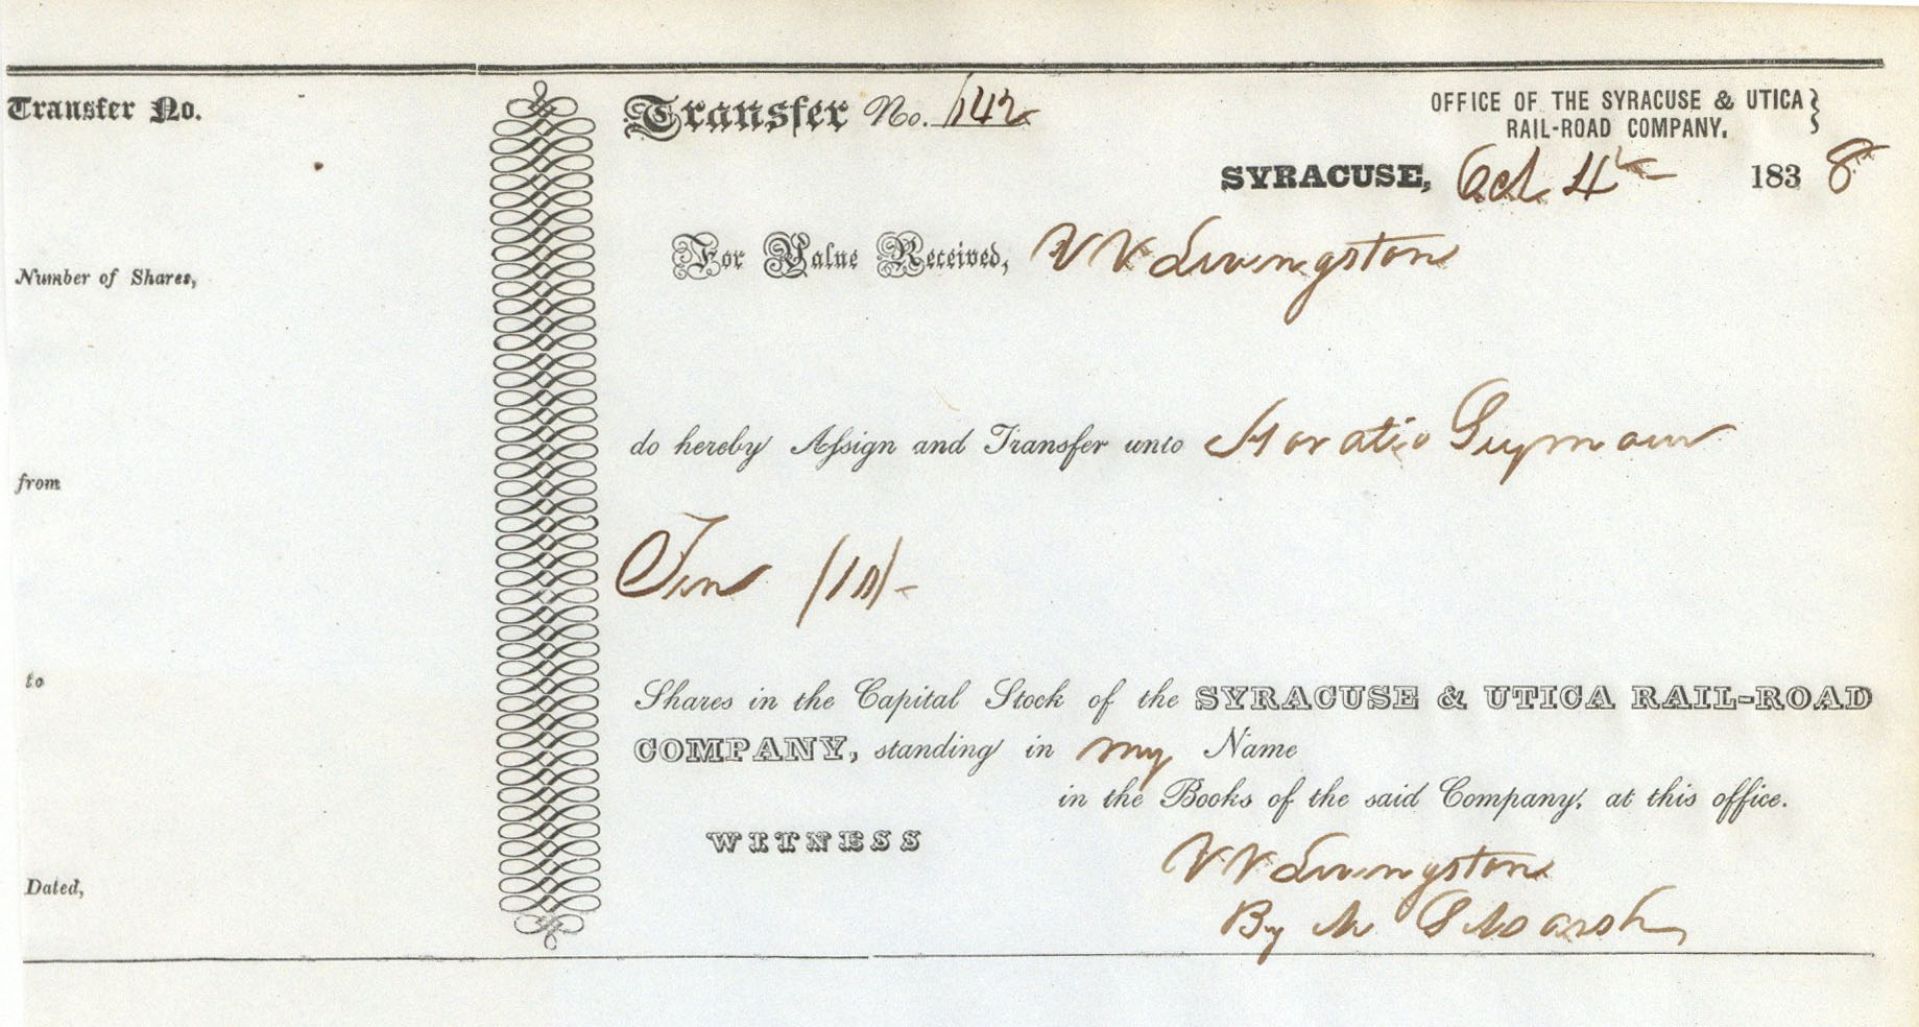 Transfer No.
Number of Shares,
from
to
Dated,
Transfer No. 142
OFFICE OF THE SYRACUSE & UTICA
RAIL-ROAD COMPANY.
SYRACUSE, Oct 4th 1838
For Value Received, V V Livingston
do hereby Assign and Transfer unto Horatio Seymour
Ten (10)-
Shares in the Capital Stock of the SYRACUSE & UTICA RAIL-ROAD
COMPANY, standing in my Name
in the Books of the said Company, at this office.
WITNESS
V V Livingston
By M S Marsh